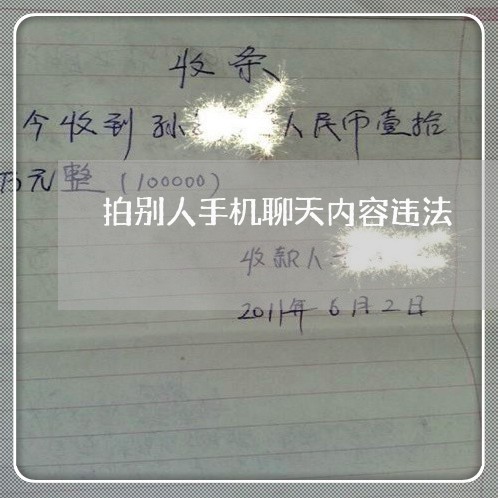 收条
今收到孙 人民币壹拾
万元整（100000）
拍别人手机聊天内容违法
收款人
2011年6月2日